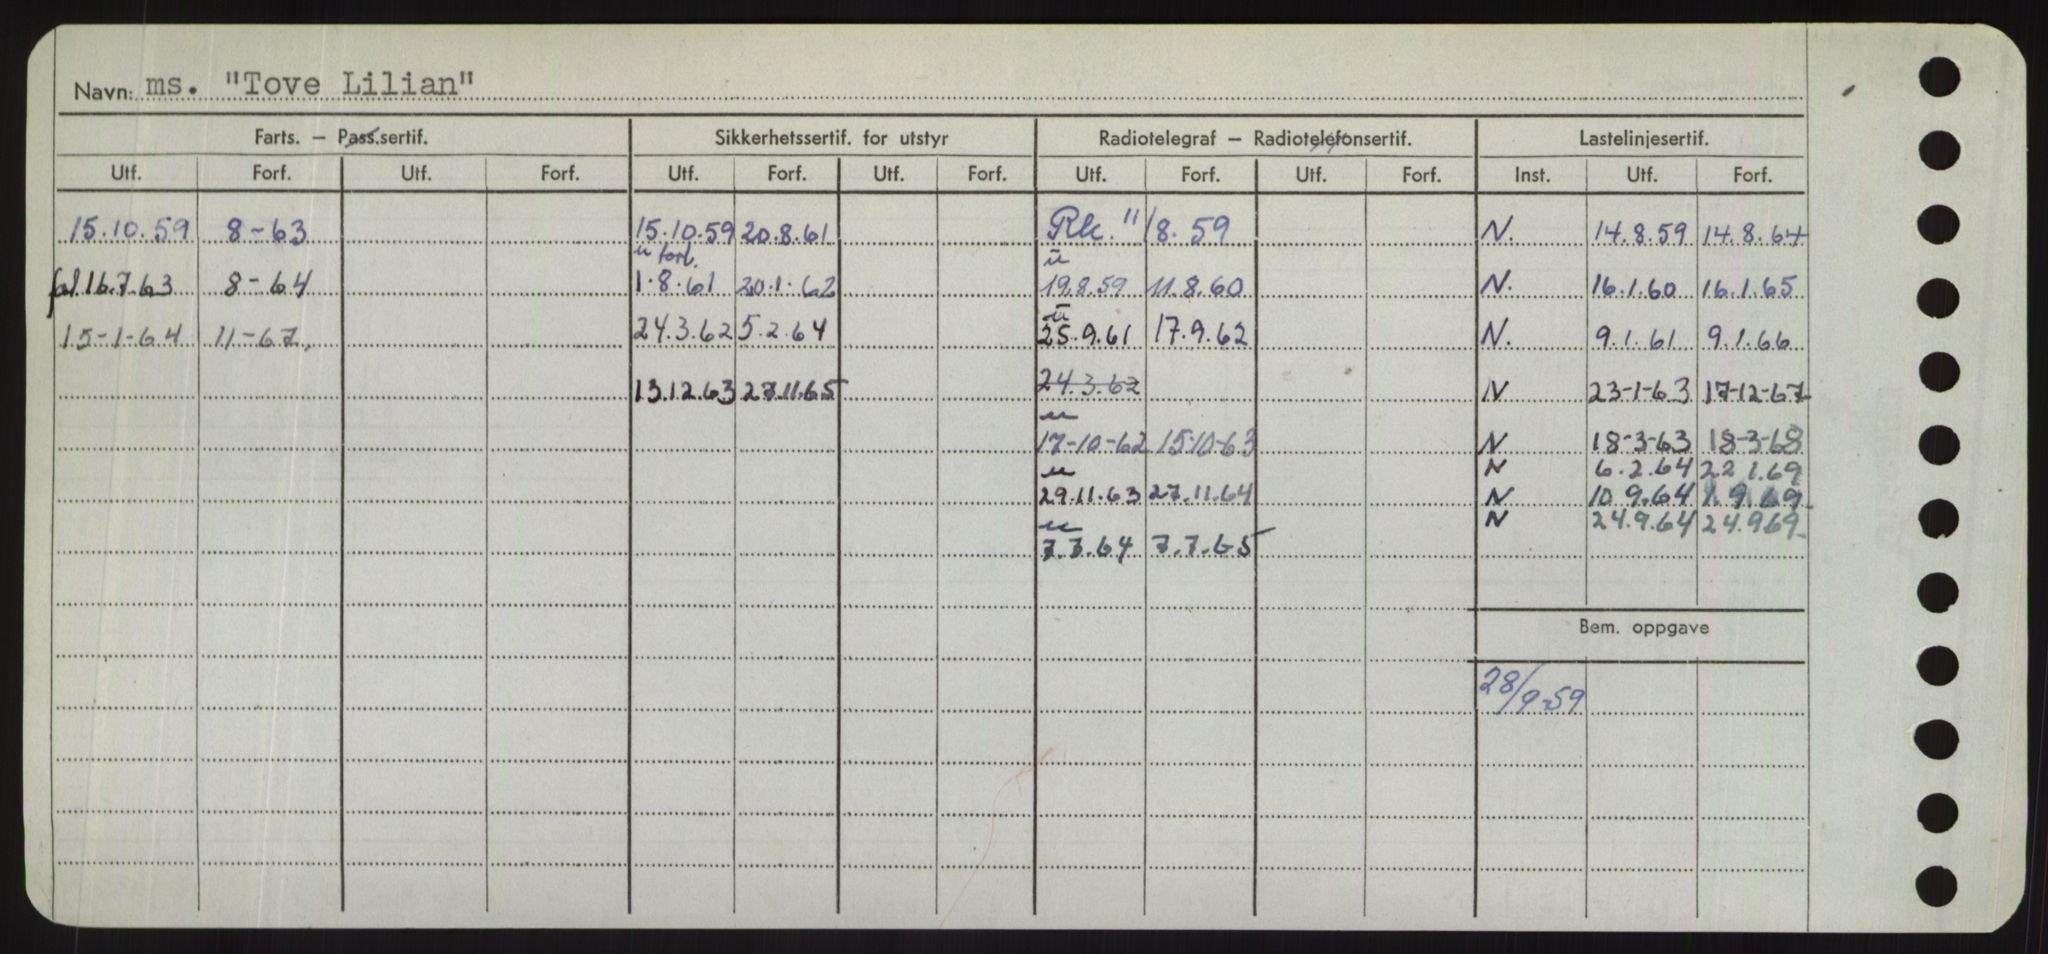 Navn: ms. "Tove Lilian"
Farts. — Pass.sertif. Sikkerhetssertif. for utstyr Radiotelegraf — Radiotelefonsertif. Lastelinjesertif.
Utf. Forf. Utf. Forf. Utf. Forf. Utf. Forf. Utf. Forf. Utf. Forf. Inst. Utf. Forf.
15.10.59 8-63 15.10.59 20.8.61 Rk. 11/8.59 N. 14.8.59 14.8.64
u forl. u
fl 16.7.63 8-64 1.8.61 20.1.62 19.8.59 11.8.60 N. 16.1.60 16.1.65
u
15-1-64 11-67. 24.3.62 5.2.64 25.9.61 17.9.62 N. 9.1.61 9.1.66
13.12.63 27.11.65 24.3.62 N 23-1-63 17-12-67
u
17-10-62 15-10-63 N 18-3-63 18-3-68
u N 6.2.64 22.1.69
29.11.63 27.11.64 N 10.9.64 1.9.69
u N 24.9.64 24.9.69
7.7.64 7.7.65
Bem. oppgave
28/9-59